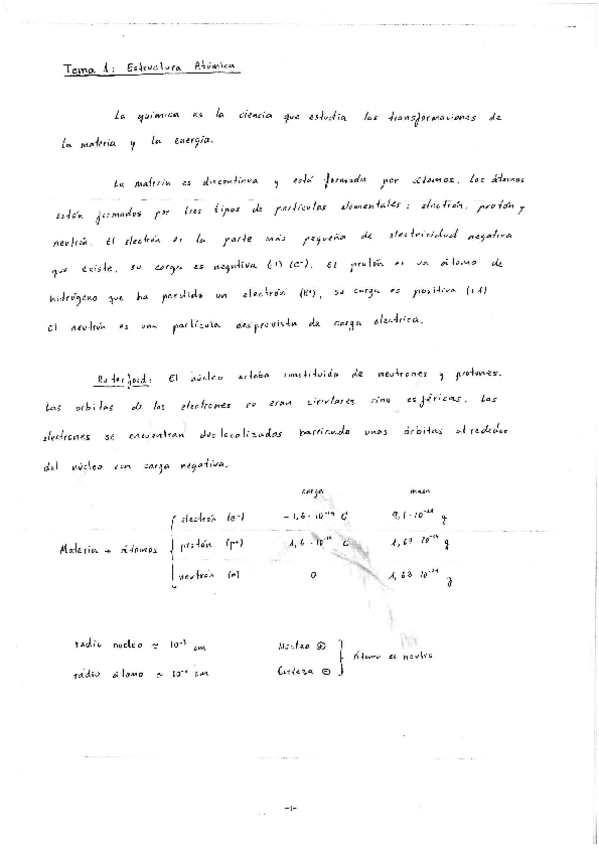 Tema 1: Estructura Atómica
La química es la ciencia que estudia las transformaciones de
la materia y la energía.
La materia es discontinua y está formada por átomos. Los átomos
están formados por tres tipos de partículas elementales: electrón, protón y
neutrón. El electrón es la parte más pequeña de electricidad negativa
que existe, su carga es negativa (-1) (e⁻). El protón es un átomo de
hidrógeno que ha perdido un electrón (H⁺), su carga es positiva (+1)
El neutrón es una partícula desprovista de carga electrica.
Ruterford: El núcleo estaba constituido de neutrones y protones.
Las orbitas de los electrones no eran circulares sino esféricas. Los
electrones se encuentran deslocalizados barriendo unas órbitas alrededor
del núcleo con carga negativa.
carga masa
electrón (e⁻) -1,6·10⁻¹⁹ C g
Materia → átomos protón (p⁺) 1,6·10⁻¹⁹ C g
neutrón (n) 0 g
radio nucleo ≈ cm Núcleo ⊕
átomo es neutro
radio átomo ≈ cm Corteza ⊖
-1-